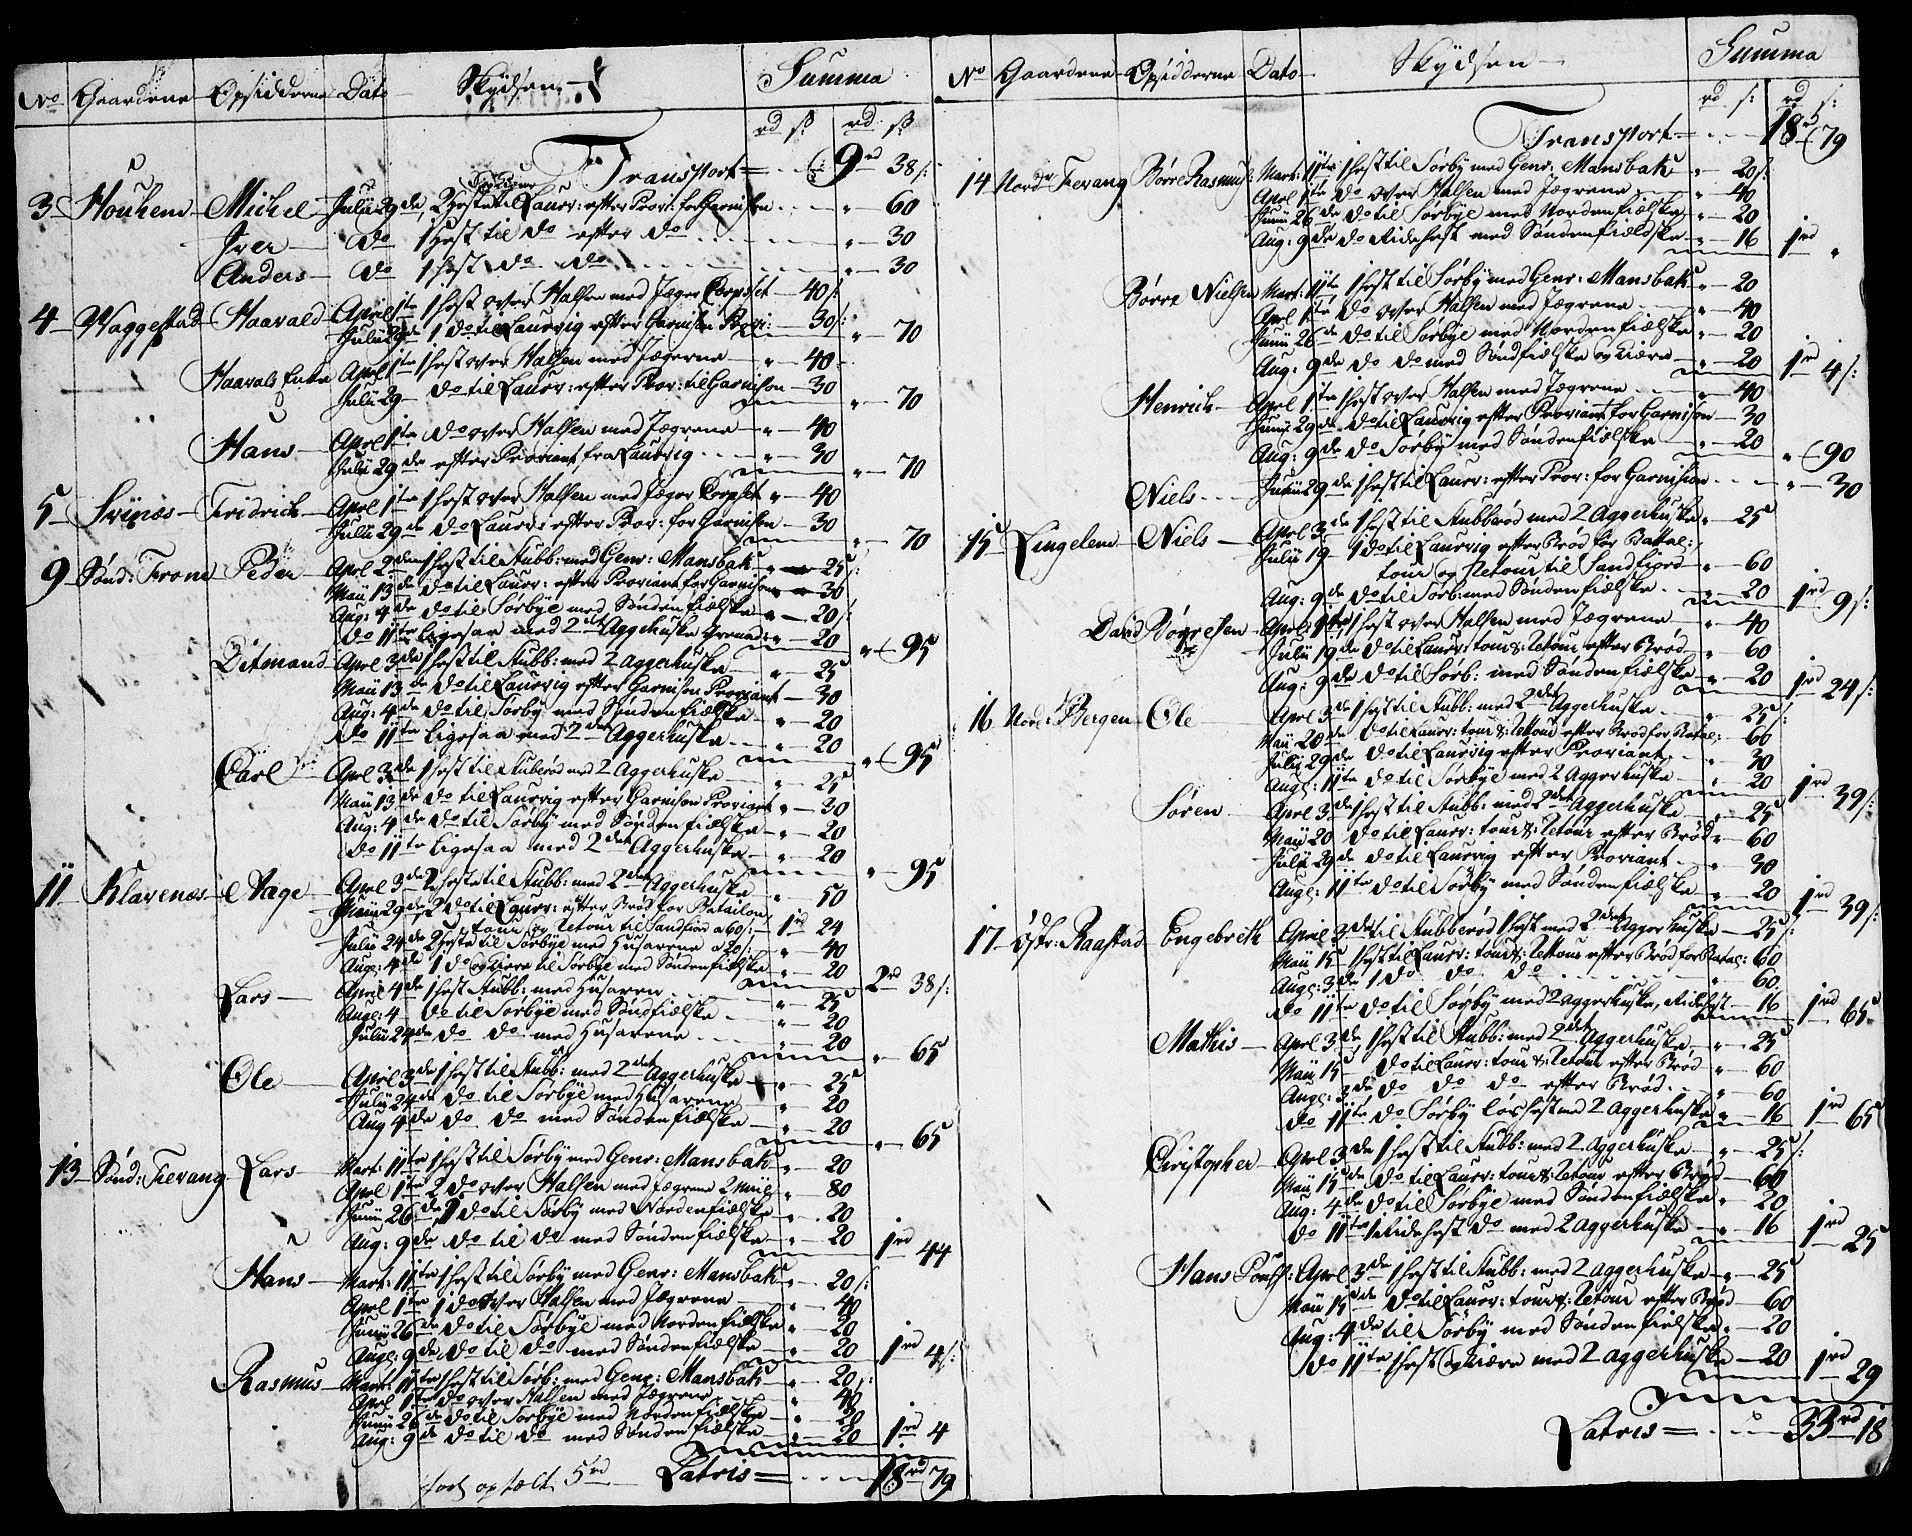 No Gaardene Opsidderne Dato Skydsen Summa
rd s: rd s:
Transport = 9rd 38/:
3 Houkem Michel Julii 29de, 2 Heste til Laurv: efter Prov: for Garnison " 60
Iver do 1 Hest til do efter do " 30
Anders do 1 hest do do " 30
4 Waggestad Haavald April 1te 1 hest over Halsen med Jæger Corpset 40/:
Julii 29de 1 do til Laurvig efter Garnison Provi: 30/: " 70
Haavals Enke April 1te 1 hest over Halsen med Jægerne " 40
Julii 29 do til Laurv: efter Prov: til Garnison 30 " 70
Hans April 1te do over Halsen med Jægrene " 40
Julii 29de efter Proviant fra Laurvig " 30 " 70
5 Svinæs Fridrich April 1te 1 hest over Halsen med Jæger Corpset " 40
Julii 29de do Laurv: efter Prov: for Garnison 30 " 70
9 Sønd: Trom Peder Aprl 2den 1 hest til Stubb: med Genr: Mansbak " 25/:
Maii 13de do til Laurv: efter Proviant for Garnison 30
Aug: 4de do til Sørbye med Søndenfielske 20/:
do 11te ligesaa med 2det Aggerhuske Grenad: " 20 " 95
Ditmand Aprl 3de 1 hest til Stubb: med 2 Aggerhuske " 25
Maii 13de do til Laurvig efter Garnison Proviant 30
Aug: 4de do til Sørby med Søndenfielske " 20
do 11te ligesaa med 2det Aggerhuske " 20 " 95
Carl Aprl 3de 1 hest til Stuberød med 2 Aggerhuske " 25
Maii 13de do til Laurvig efter Garnison Proviant " 30
Aug: 4de do til Sørby med Søndenfielske " 20
do 11te ligesaa med 2det Aggerhuske " 20 " 95
11 Klavenæs Aage Aprel 3de 2 heste til Stubb: med 2det Aggerhuske " 50
29de 2 do til Laurv: efter Brød for Batailon
tour og Retour til Sandfiord a 60/: 1rd 24
Julii 24de 2 Heste til Sørbye med Husarene a 20/: " 40
Aug: 4de 1 do og Kiere til Sørbye med Søndenfielske " 20 2rd 38/:
Lars April 4de 1 hest Stubb: med Husaren " 25
Aug: 4 do til Sørbye med Søndfielske " 20
Julii 24de do do med Husarene " 20 " 65
Ole April 3de 1 hest til Stubb: med 2det Aggerhuske " 25
Julii 24de do til Sørbye med Husarene " 20
Aug 4de do do med Søndenfielske " 20 " 65
13 Sønd: Tievang Lars Mart: 11te 1 hest til Sørby med Genr: Mansbak " 20
Aprl 1te 2 do over Halsen med Jægrene 2 Miil " 80
Junii 26de 1 do til Sørby med Nordenfielske " 20
Aug: 9de do til do med Søndenfielske " 20 1rd 44
Hans Mart: 11te 1 hest til Sørby med Genr: Mansbak " 20/:
Aprl 1te 1 do over Halsen med Jægrene " 40
Junii 26de do til Sørbye med Nordenfielske " 20
Aug: 9de do til do med Søndenfielske " 20 1rd 4/:
Rasmus Mart: 11te 1 hest til Sørb: med Genr: Mansbak " 20/:
Aprl 1te do over Halsen med Jægrene " 40
Junii 26de do til Sørbye med Nordenfielske " 20
Aug: 9de do til do med Søndenfielske " 20 1rd 4
5rd Latris = 18rd 79
No Gaardene Opsidderne Dato Skydsen Summa
rd s: rd s:
Transport = 18rd 79
14 Nordr Tievang Børre Rasmus: Mart: 11te 1 hest til Sørby med Genr: Mansbak " 20/:
Aprl 1te do over Halsen med Jægrene " 40
Junii 26de do til Sørbye med Nordenfielske " 20
Aug: 9de do Ridehest med Søndenfieldske " 16 1rd "
Børre Nielsen Mart: 11te 1 hest til Sørby med Genr: Mansbak " 20
Aprl 1te do over Halsen med Jægrene " 40
Junii 26de do til Sørbye med Nordenfielske " 20
Aug: 9de do do med Søndfielske og Kiære " 20 1rd 4/:
Henrich Aprl 1te 1 hest over Halsen med Jægrene 40
Junii 29de do til Laurvig efter Proviant for Garnison 30
Aug: 9de do Sørby med Søndenfielske 20 " 90
Niels Junii 29de 1 hest til Laurv: efter Prov: for Garnison " 30
15 Lingelem Niels Aprel 3de 1 hest til Stubberød med 2 Aggerhuske " 25
Julii 19 1 do til Laurvig efter Brød for Batal:
tour og Retour til Sandfiord " 60
Aug: 9de do til Sørb: med Søndenfielske 20 1rd 9/:
David Børresen Aprel: 1te 1 hest over Halsen med Jægrene " 40
Julii 19de do til Laurv: tour &: Retour efter Brød " 60
Aug: 9de do til Sørb: med Søndenfielske " 20 1rd 24/:
16 Nord: Bergen Ole Aprel 3de 1 hest til Stubb: med 2det Aggerhuske " 25/:
Maii 20de do til Laurv: tour &: Retour efter Brød for Batal: 60
Julii 29de do til Laurvig efter Proviant " 30
Aug: 11te do til Sørbye med 2 Aggerhuske " 20 1rd 39/:
Søren Aprel 3de 1 hest til Stubb: med 2det Aggerhuske " 25
Maii 20 do til Laurv: tour &: Retour efter Brød " 60
Julii 29de do til Laurvig efter Proviant " 30
Aug: 11te do til Sørby med Søndenfielske " 20 1rd 39/:
17 Østr: Raastad Engebreth April 3de til Stubberød 1 hest med 2det Aggerhuske 25/:
Maii 15 1 hest til Laurv: tour &: Retour efter Brød for Batal: 60
Aug: 3de 1 do do do " 60
do 11te do til Sørby med 2 Aggerhuske, Ridehest 16 1rd 65
Mathis Aprel 3de 1 hest til Stubb: med 2det Aggerhuske " 25
Maii 15 do til Laurv: tour &: Retour efter Brød " 60
Aug: 3de do do do efter Brød " 60
do 11te do Sørby løshest med 2 Aggerhuske " 16 1rd 65
Christopher Aprel 3de 1 hest til Stubb: med 2 Aggerhuske " 25/:
Maii 15de do til Laurv: tour &: Retour efter Brød 60
Aug: 4de do til Sørbye med Søndenfielske " 20
do 11te 1 Ridehest do med 2 Aggerhuske " 16 1rd 25
Hans Aprel 3de 1 hest til Stubb: med 2 Aggerhuske " 25
Maii 15de do til Laurv: tour &: Retour efter Brød 60
Aug: 4de til Sørby med Søndenfielske " 20
do 11te 1 hest og Kiære med 2 Aggerhuske 20 1rd 29
Latris = 33rd 18